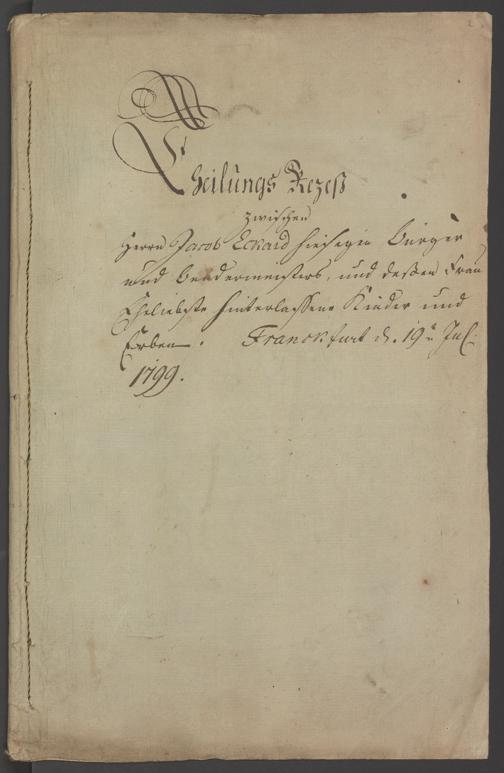 Theilungs Rezeß
zwischen
Herrn Jacob Eckard hiesigen Burger
und Bendermeisters, und deßen Frau
Eheliebste hinterlassene Kinder und
Erben. Franckfurt d. 19n Jul.
1799.